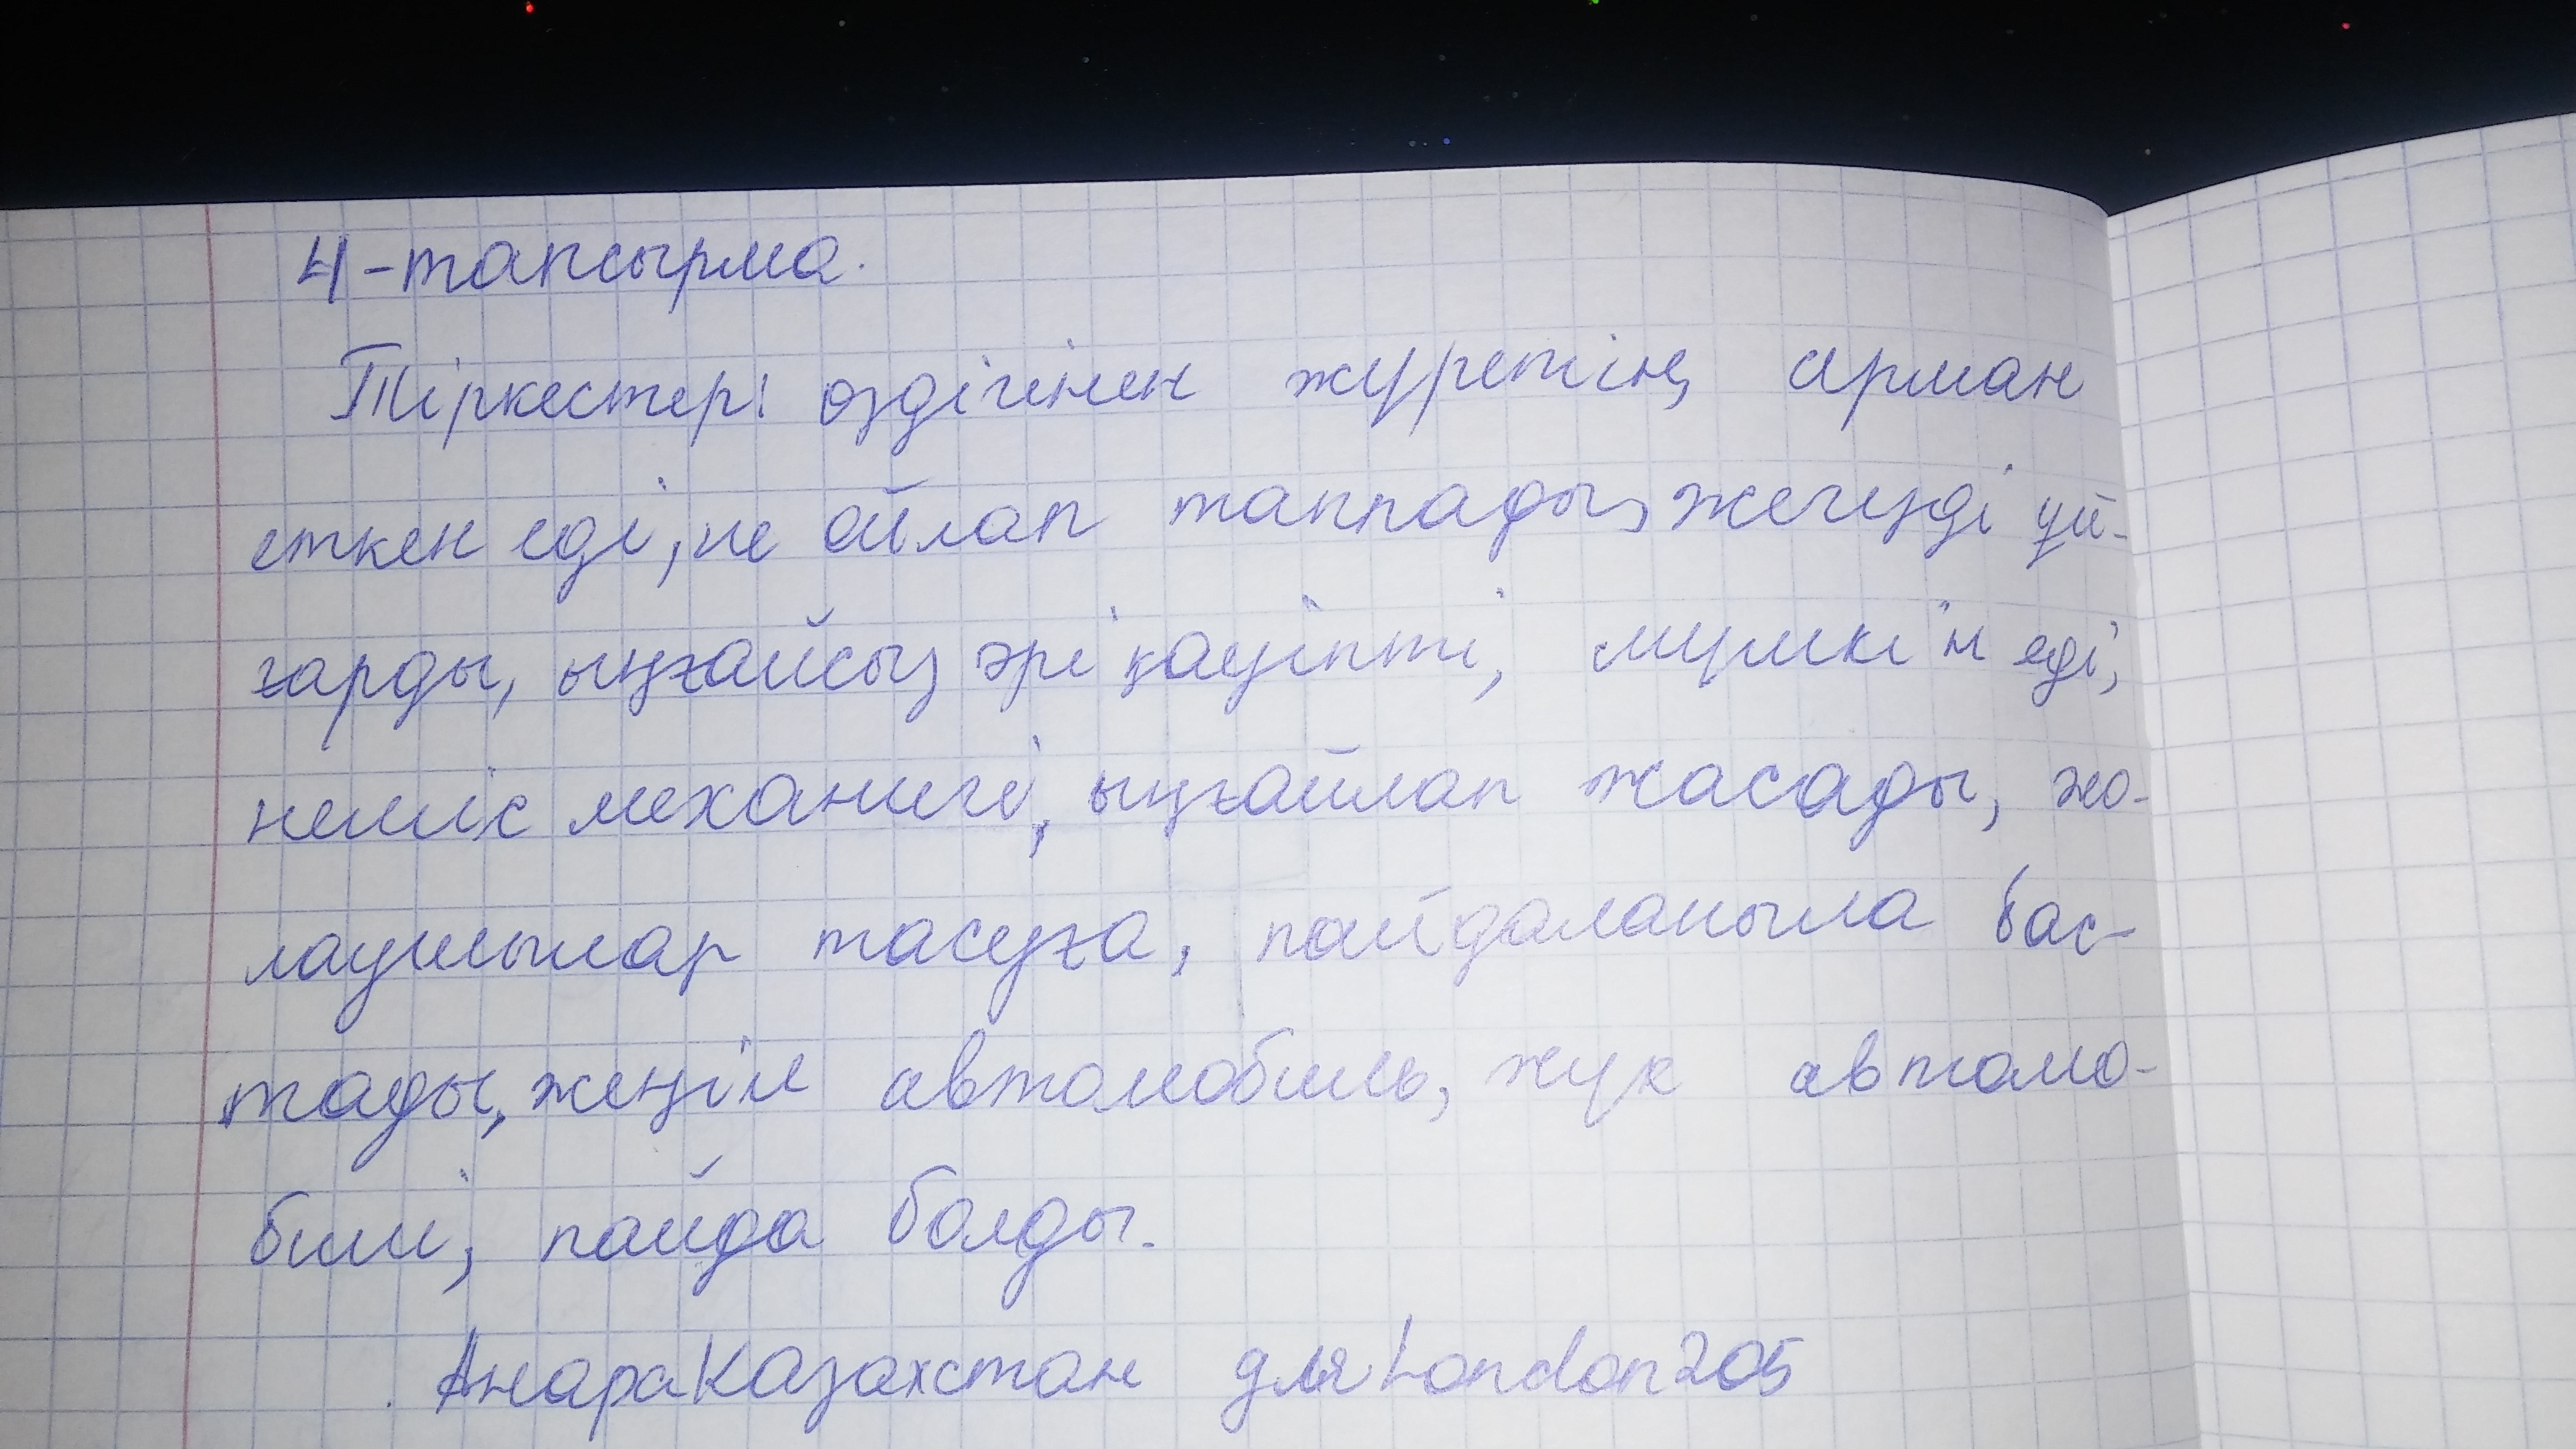 4-тапсырма.
Тіркестер: өздігінен жүретін, арман
еткен еді, не ойлап таппады, жегізді ұй-
ғарды, ыңғайсыз, әрі қауіпті, мүмкін еді,
неміс механигі, ыңғайлап жасады, жо-
лаушылар тасуға, пайдаланыла бас-
тады, жеңіл автомобиль, жүк автомо-
билі, пайда болды.
АнараКазахстан для London205